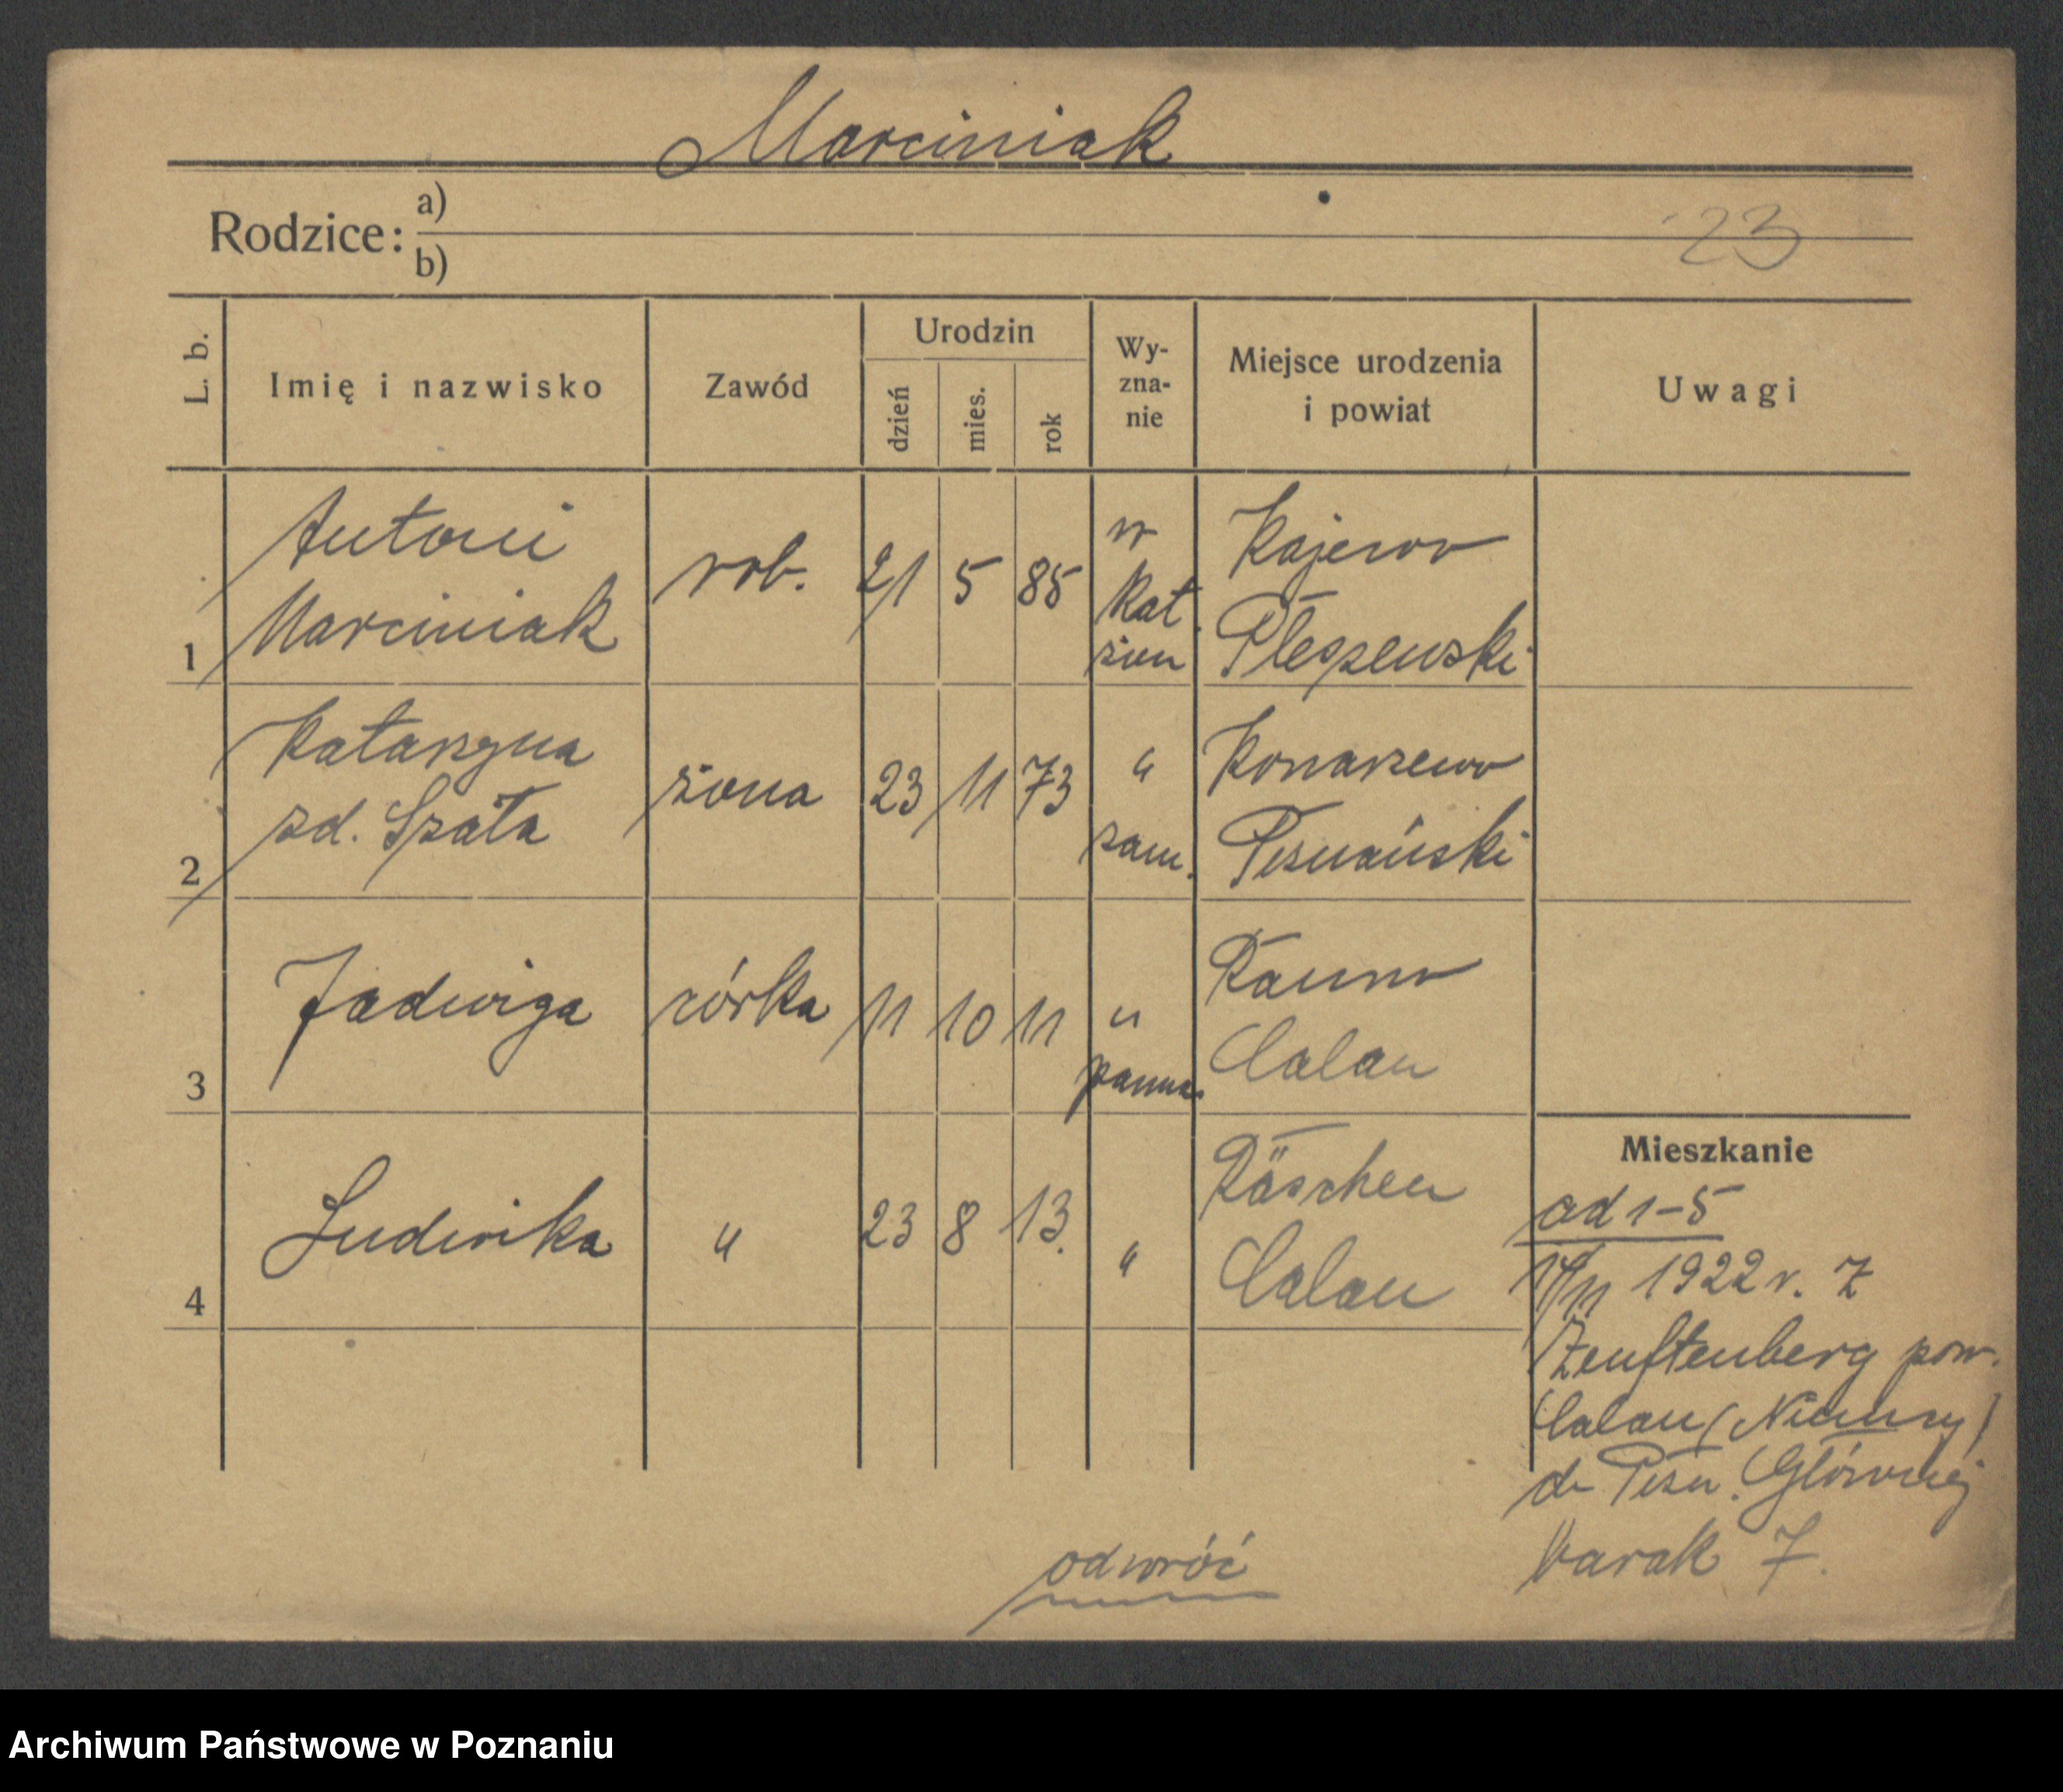 Marciniak
Rodzice: a)
b)
23
L. b.
Imię i nazwisko
Zawód
Urodzin
dzień
mies.
rok
Wy-
zna-
nie
Miejsce urodzenia
i powiat
Uwagi
1
Antoni
Marciniak
rob.
21 5 85
r
kat.
żon
Kajewo
Pleszewski
2
Katarzyna
zd. Szała
żona
23 11 73
"
zam.
Konarzewo
Poznański
3
Jadwiga
córka
11 10 11
"
panna
Rauno
Calau
4
Ludwika
"
23 8 13.
"
Räschen
Calau
Mieszkanie
ad 1-5
1922 r. z
Zenftenberg pow.
Calau (Niemcy)
do Pozn. Głównej
barak 7.
odwróć
Archiwum Państwowe w Poznaniu